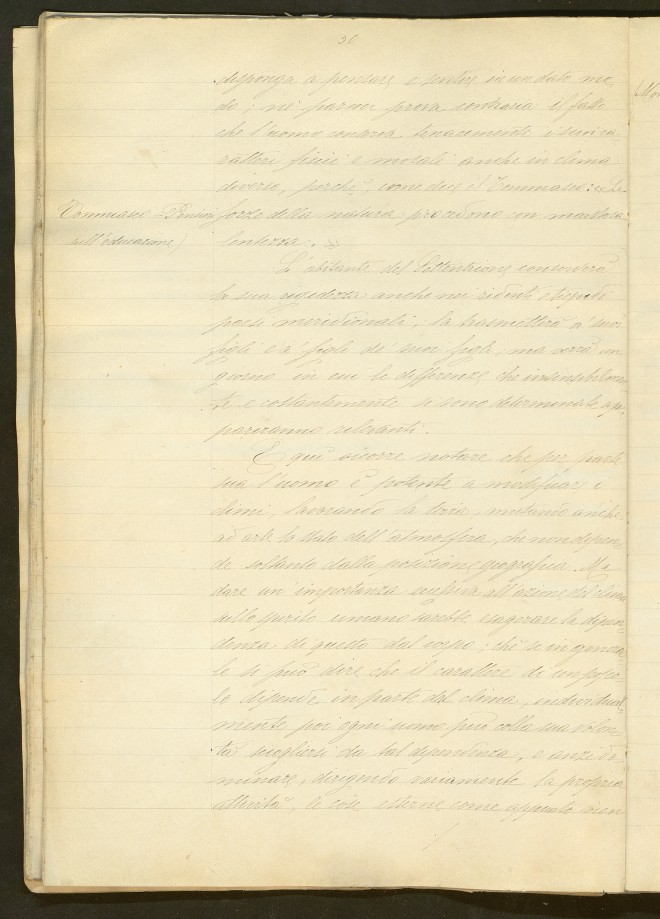 30
disponga a pensare e sentire in un dato mo-
do; nè parmi prova contraria il fatto
che l'uomo conserva tenacemente i suoi ca-
ratteri fisici e morali anche in clima
diverso, perchè, come dice il Tommaseo: "Le
Tommaseo - Pensieri forze della natura procedono con maestosa
sull'educazione) lentezza."
L'abitante del Settentrione conserverà
la sua rigidezza anche nei ridenti e tiepidi
paesi meridionali, la trasmetterà a' suoi
figli e a' figli de' suoi figli, ma verrà un
giorno in cui le differenze che insensibilmen-
te e costantemente si sono determinate ap-
pariranno rilevanti.
E qui occorre notare che per parte
sua l'uomo è potente a modificare i
climi, lavorando la terra, mutando anche
ad arte lo stato dell'atmosfera, che non dipen-
de soltanto dalla posizione geografica. Ma
dare un'importanza eccessiva all'azione del clima
sullo spirito umano sarebbe esagerare la dipen-
denza di questo dal corpo; chè se in genera-
le si può dire che il carattere di un popo-
lo dipende in parte dal clima, individual-
mente poi ogni uomo può colla sua volon-
tà sciogliersi da tal dipendenza, e anzi do-
minare, dirigendo variamente la propria
attività, le cose esterne come appunto vien